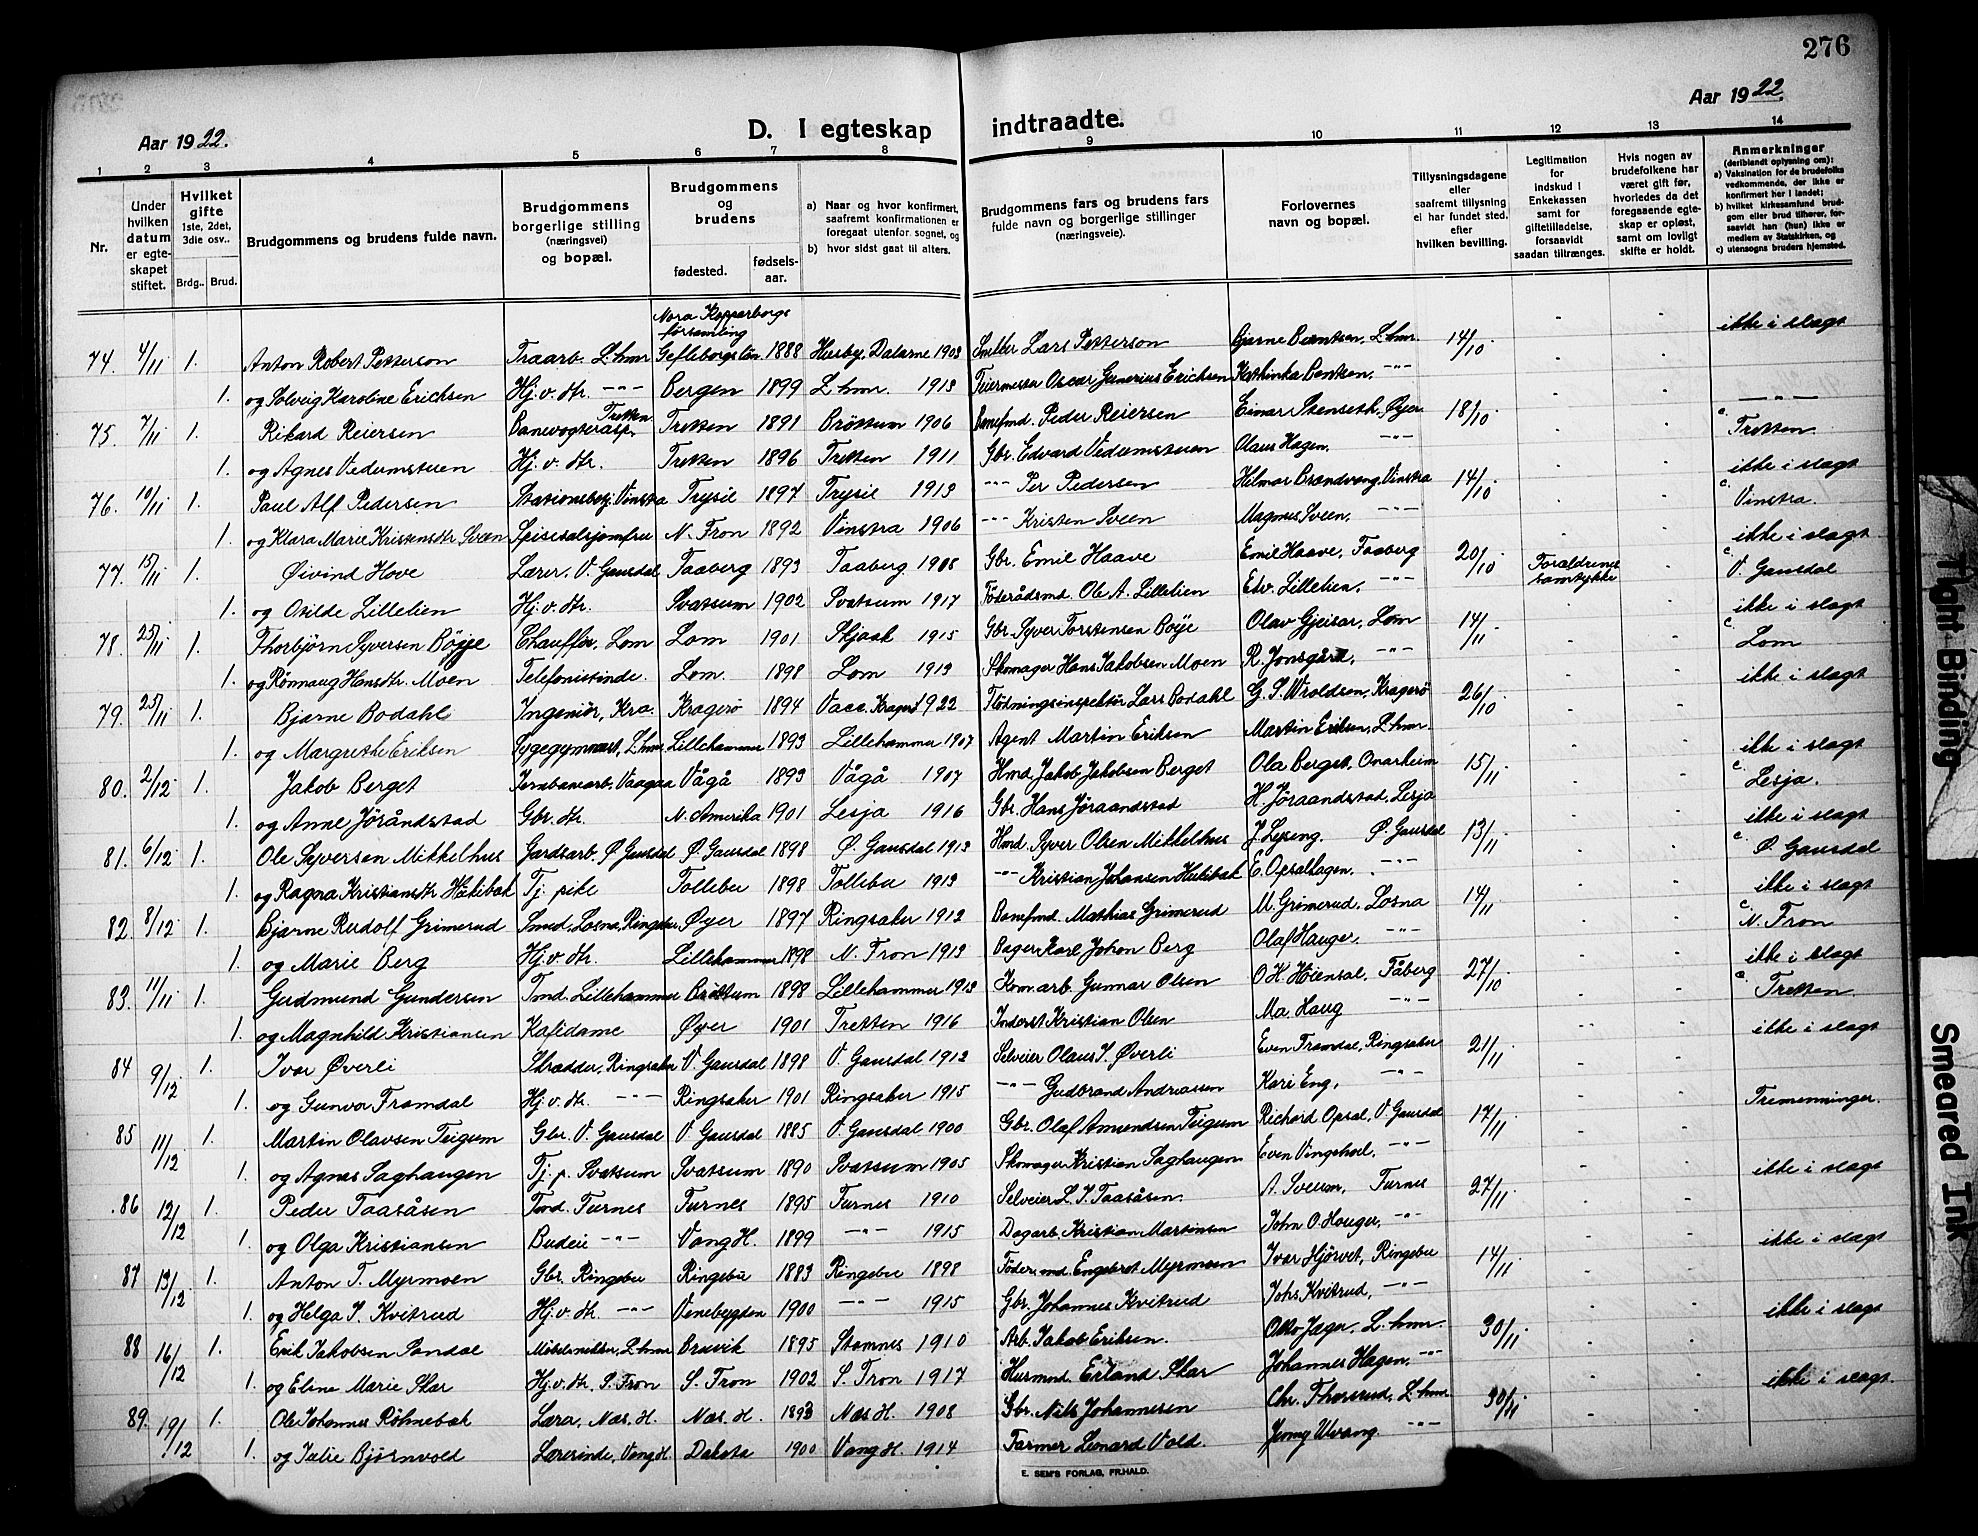 276
Aar 1922.
D. I egteskap indtraadte.
Aar 1922.
1 2 3 4 5 6 7 8 9 10 11 12 13 14
Nr.
Under hvilken datum er egteskapet stiftet.
Hvilket gifte 1ste, 2det, 3die osv..
Brdg.. Brud.
Brudgommens og brudens fulde navn.
Brudgommens borgerlige stilling (næringsvei) og bopæl.
Brudgommens og brudens
fødested. fødsels-aar.
a) Naar og hvor konfirmert, saafremt konfirmationen er foregaat utenfor sognet, og
b) hvor sidst gaat til alters.
Brudgommens fars og brudens fars fulde navn og borgerlige stillinger (næringsveie).
Forlovernes navn og bopæl.
Tillysningsdagene eller saafremt tillysning ei har fundet sted. efter hvilken bevilling.
Legitimation for indskud i Enkekassen samt for giftetilladelse, forsaavidt saadan tiltrænges.
Hvis nogen av brudefolkene har været gift før, hvorledes da det foregaaende egteskap er opløst, samt om lovligt skifte er holdt.
Anmerkninger (deriblandt oplysning om):
a) Vaksination for de brudefolks vedkommende, der ikke er konfirmert her i landet;
b) hvilket kirkesamfund brudgom eller brud tilhører, forsaavidt han (hun) ikke er medlem av Statskirken, og
c) utensogns bruders hjemsted.
Nora Kopparbergs församling
74. 4/11 1. Anton Robert Petterson Traarb. L.hmr Gefleborgs län 1888 Husby, Dalarne 1903 Smelter Lars Petterson Bjarne Berntsen, L.hmr. 14/10. ikke i slagt
1. og Solveig Karoline Erichsen Hj.v.dtr. -"- Bergen 1899 L.hmr. 1913 Oscar Gunerius Erichsen Kathinka Bentsen, -"-
75. 7/11 1. Rikard Reiersen Banevogterasp. Tretten Tretten 1891 Brøttum 1906 Banefmd. Peder Reiersen Einar Stenseth, Øyer 18/10. -"-
1. og Agnes Vedumstuen Hj.v.dtr. Tretten 1896 Tretten 1911 Gbr. Edvard Vedumstuen Olaus Hagen, -"- c. Tretten.
76. 10/11 1. Paul Alf Pedersen Stationsbetj. Vinstra Trysil 1897 Trysil 1913 -"- Per Pedersen Helmar Brandvang, Vinstra 14/10 ikke i slagt
1. og Klara Marie Kristensdtr. Sveen Spisesalsjomfru N. Fron 1892 Vinstra 1906 -"- Kristen Sveen Magnus Sveen, -"- c. Vinstra.
77. 15/11 1. Øivind Hove Lærer, V. Gausdal Faaberg 1893 Faaberg 1908 Gbr. Emil Haave Emil Haave, Faaberg 20/10 Forældrenes samtykke ikke i slagt
1. og Osilde Lillelien Hj.v.dtr. Svatsum 1902 Svatsum 1917 Føderådsmd. Ole A. Lillelien Edv. Lillelien, -"- c. V. Gausdal
78. 25/11 1. Thorbjørn Syversen Bøyje Chauffør, Lom Lom 1901 Skjaak 1915 Gbr. Syver Torstensen Bøye Olav Gjeisar, Lom 14/11 ikke i slagt
1. og Rønnaug Hansdtr. Moen Telefonistinde. Lom. 1898 Lom 1913 Skomager Hans Jakobsen Moen R. Jonsgård, -"- c. Lom
79. 25/11 1. Bjarne Bodahl Ingeniör, Kra. Kragerö 1894 Vacc. Kragerö 1922 Flötningsinspektör Lars Bodahl G. S. Wroldsen, Kragerö 26/10 ikke i slagt
1. og Margrethe Eriksen Sygegymnast, L.hmr Lillehammer 1893 Lillehammer 1907 Agent Martin Eriksen Martin Eriksen, L.hmr.
80. 2/12 1. Jakob Berget Jernbanearb. Vaagaa Vågå 1893 Vågå 1907 Hmd. Jakob Jakobsen Berget Ola Berget, Onarheim 15/11. ikke i slagt
1. og Anne Jöråndstad Gbr. dtr. N. Amerika 1901 Lesja 1916 Gbr. Hans Jöraandstad H. Jöraandstad, Lesja c. Lesja.
81. 6/12 1. Ole Syversen Mikkelhus Gardsarb. Ø. Gausdal Ø. Gausdal 1898 Ø. Gausdal 1913 Hmd. Syver Olsen Mikkelhus J. Lyseng. Ø. Gausdal 13/11 ikke i slagt
1. og Ragna Kristiansdtr. Tj. pike Follebu 1898 Follebu 1913 -"- Kristian Johansen E. Opsalhagen. -"- c. Ø. Gausdal
82. 8/12 1. Bjarne Rudolf Grimerud Smed, Losna, Ringebu Øyer 1897 Ringsaker 1912 Banefmd. Mathias Grimerud M. Grimerud, Losna 14/11 ikke i slagt
1. og Marie Berg Hj.v.dtr. Lillehammer 1898 N. Fron 1913 Bager Karl Johan Berg Olaf Hauger, -"- c. N. Fron
83. 11/11 1. Gudmund Gundersen Tmd. Lillehammer Brøttum 1898 Lillehammer 1913 Kom.arb. Gunnar Olsen O. H. Høiensal, Fåberg 27/10 ikke i slagt
1. og Magnhild Kristiansen Kafedame Øyer 1901 Tretten 1916 Inderst Kristian Olsen Ma. Haug -"- c. Tretten.
84 9/12 1. Ivar Øverli Skrædder, Ringsaker V. Gausdal 1898 V. Gausdal 1912 Selveier Olaus I. Øverli Even Framdal, Ringsaker 21/11 ikke i slagt
1. og Gunva Framdal Hj.v.dtr. -"- Ringsaker 1901 Ringsaker 1915 -"- Gudbrand Andreassen Kari Eng, -"-
85 11/12 1. Martin Olavsen Teigum Gbr. V. Gausdal V. Gausdal 1885 V. Gausdal 1900 Gbr. Olaf Amundsen Teigum Richard Opsal, V. Gausdal 17/11. Tremenninger.
1. og Agnes Saghaugen Tj. p. Svatsum Svatsum 1890 Svatsum 1905 Skomager Kristian Saghaugen Even Vingehoel, -"-
86 12/12 1. Peder Taasåsen Tmd. Furnes Furnes 1895 Furnes 1910 Selveier L. J. Taasåsen. A. Sveum, Furnes 27/11. ikke i slagt
1. og Olga Kristiansen Budeie -"- Vang H. 1899 -"- 1915 Dagarb. Kristian Martinsen John O. Hauger, -"-
87 13/12 1. Anton T. Myrmoen Gbr. Ringebu Ringebu 1883 Ringebu 1898 Föder.md. Engebret Myrmoen Ivar Hjörvet, Ringebu 14/11. ikke i slagt
1. og Helga J. Kvitrud Hj.v.dtr. -"- Venebygden 1900 -"- 1915 Gbr. Johannes Kvitrud Johs. Kvitrud, -"-
88 16/12 1. Erik Jakobsen Sandal Möbelsnekker, L.hmr Bruvik 1895 Stamnes 1910 Arb. Jakob Eriksen. Otto Jager, L.hmr. 30/11. ikke i slagt
1. og Eline Marie Skar Hj.v.dtr, S. Fron S. Fron 1902 S. Fron 1917 Husmnd. Erland Skar Johannes Hagen, -"-
89. 19/12 1. Ole Johannes Röhnebak Lærer, Næs. H. Næs. H. 1893 Næs H. 1908 Gbr. Nils Johannesen Chr. Thorsrud, L.hmr. 30/11 ikke i slagt
1. og Julie Bjørnvold Lærerinde, Vang H. Dakota 1900 Vang H. 1914 Farmer Leonard Vold. Jenny Ulvang -"-
E. SEM'S FORLAG, FR.HALD.
Tight Binding
Smeared Ink